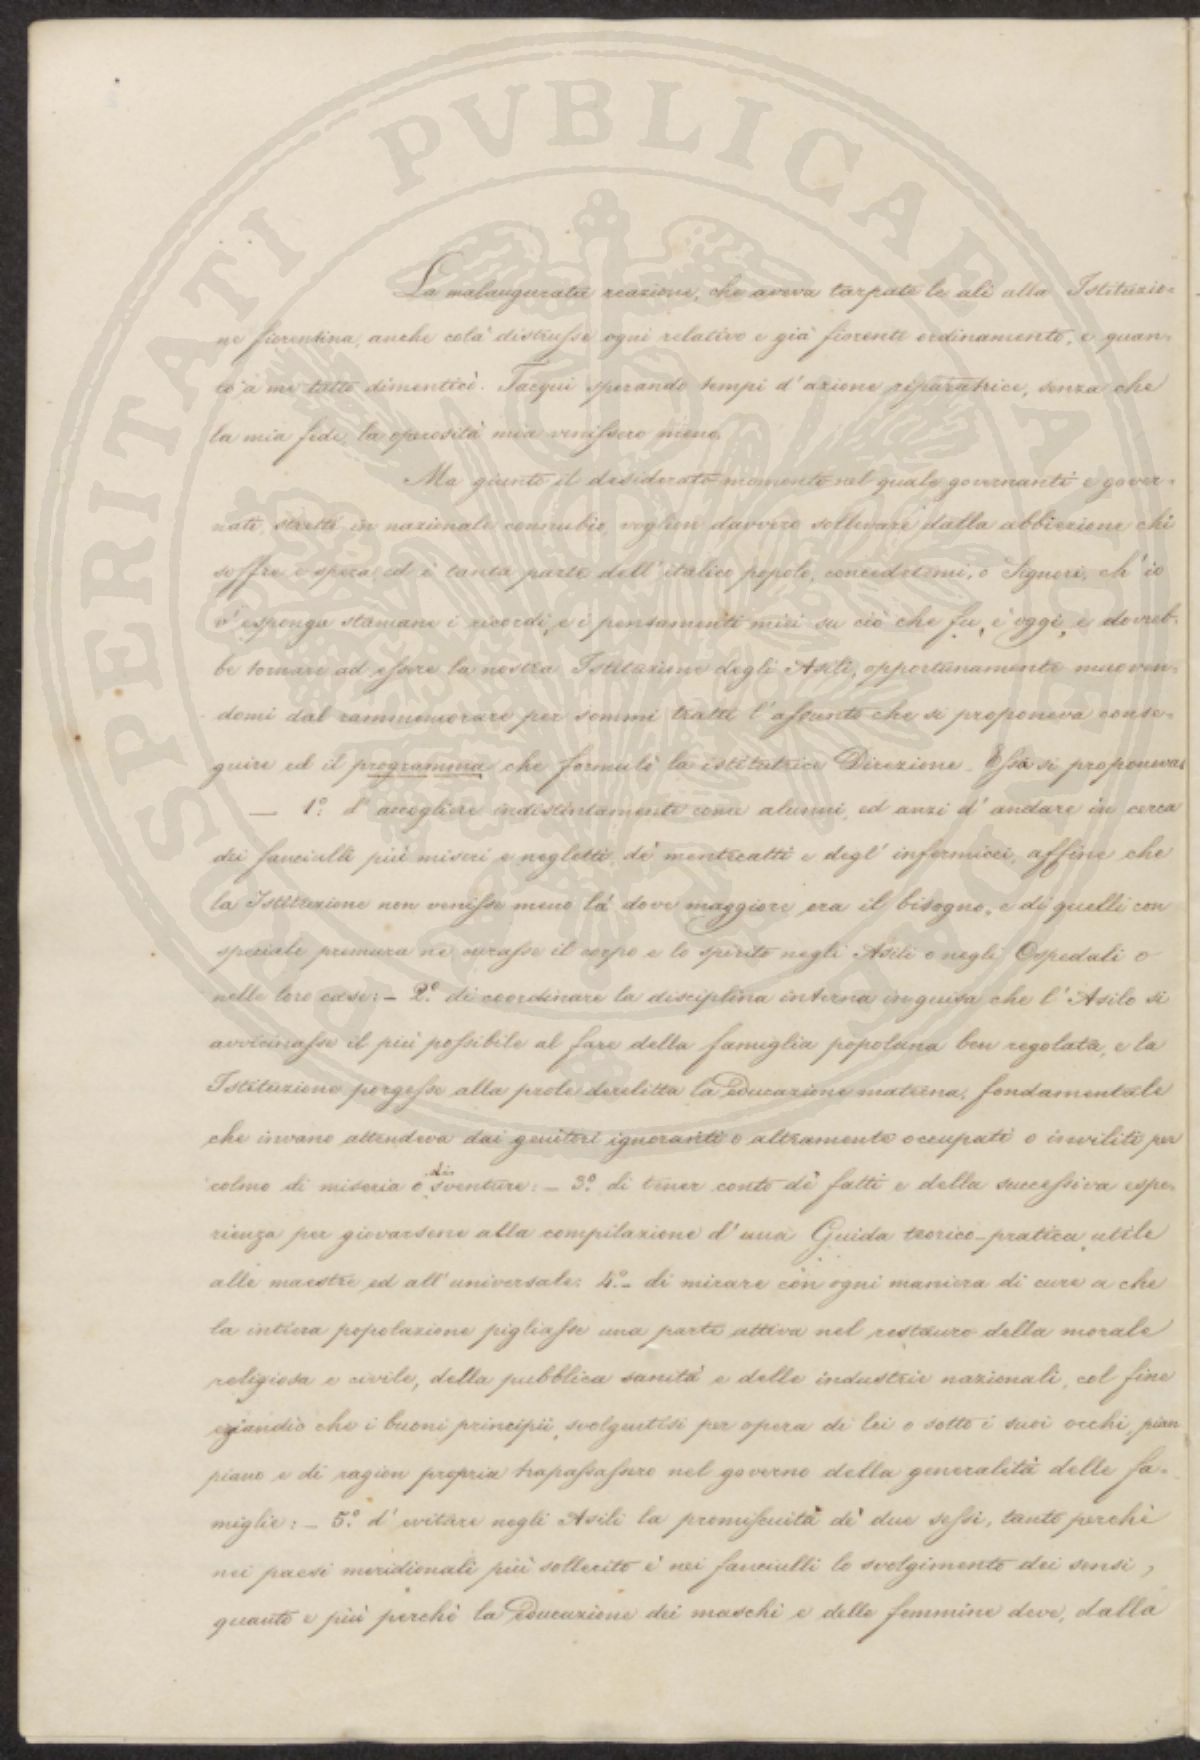 La malaugurata reazione, che aveva tarpate le ali alla Istituzio-
ne fiorentina, anche colà distrusse ogni relativo e già fiorente ordinamento, e quan-
to a me tutto dimenticò. Tacqui sperando tempi d'azione riparatrice, senza che
la mia fede, la operosità mia venissero meno.
Ma giunto il desiderato momento nel quale governanti e gover-
nati, stretti in nazionale connubio, voglion davvero sollevare dalla abbiezione chi
soffre e spera ed è tanta parte dell'italico popolo, concedetemi, o Signori, ch'io
v'esponga stamane i ricordi, e i pensamenti miei su ciò che fu, è oggi, e dovreb-
be tornare ad essere la nostra Istituzione degli Asili, opportunamente muoven-
domi dal rammemorare per sommi tratti l'assunto che si proponeva conse-
guire ed il programma che formulò la istitutrice Direzione. Essa si proponeva:
— 1.º d'accogliere indistintamente come alunni, ed anzi d'andare in cerca
dei fanciulli più miseri e negletti, de' mentecatti e degl'infermicci, affine che
la Istituzione non venisse meno là dove maggiore era il bisogno, e di quelli con
speciale premura ne curasse il corpo e lo spirito negli Asili o negli Ospedali o
nelle loro case: — 2.º di coordinare la disciplina interna in guisa che l'Asilo si
avvicinasse il più possibile al fare della famiglia popolana ben regolata, e la
Istituzione porgesse alla prole derelitta la Educazione materna, fondamentale
che invano attendeva dai genitori ignoranti o altramente occupati o inviliti per
colmo di miseria o di sventure: — 3.º di tener conto de' fatti e della successiva espe-
rienza per giovarsene alla compilazione d'una Guida teorico-pratica utile
alle maestre ed all'universale: 4.º — di mirare con ogni maniera di cure a che
la intiera popolazione pigliasse una parte attiva nel restauro della morale
religiosa e civile, della pubblica sanità e delle industrie nazionali, col fine
eziandio che i buoni principii, svolgentisi per opera di lei o sotto i suoi occhi, pian
piano e di ragion propria trapassassero nel governo della generalità delle fa-
miglie: — 5.º d'evitare negli Asili la promiscuità de' due sessi, tanto perchè
nei paesi meridionali più sollecito è nei fanciulli lo svolgimento dei sensi,
quanto e più perchè la Educazione dei maschi e delle femmine deve, dalla
SPERITATI PVBLICAE